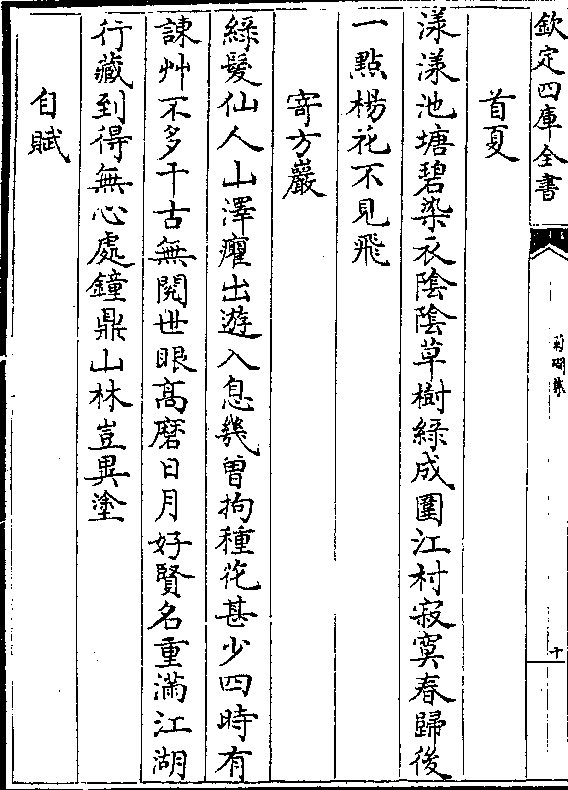 欽定四庫全書
菊磵集
十
首夏
漾漾池塘碧染衣陰陰草樹綠成圍江村寂寞春歸後
一點楊花不見飛
寄方巖
綠髮仙人山澤癯出遊入息幾曾拘種花甚少四時有
諫艸不多千古無閱世眼高磨日月好賢名重滿江湖
行藏到得無心處鐘鼎山林豈異塗
自賦